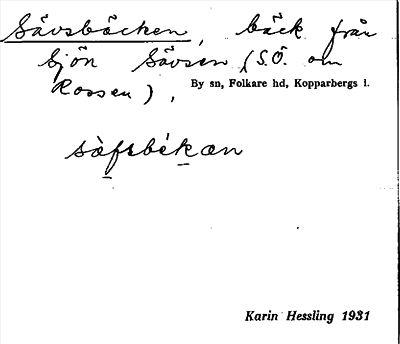 Sävsbäcken, bäck från
sjön Sävsen (S.Ö. om
Rossen),
By sn, Folkare hd, Kopparbergs l.
sä̀fsbékan
Karin Hessling 1931